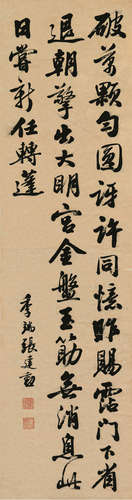 破萬顆勻圓訝許同憶昨賜霑門下省
退朝擎出大明宮金盤玉筯無消息此
日嘗新任轉蓬
季端張建勳